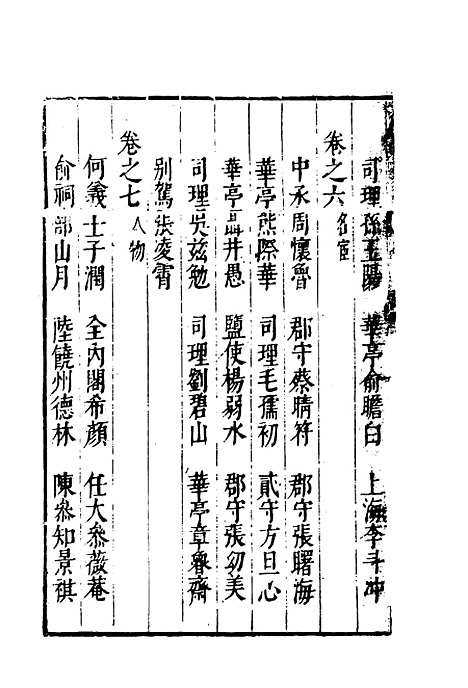 司理孫玉陽 華亭俞瞻白 上海李斗冲
卷之六 名宦
中丞周懷魯 郡守蔡晴符 郡守張曙海
華亭熊際華 司理毛孺初 貳守方旦心
華亭聶井愚 鹽使楊弱水 郡守張幼美
司理吳兹勉 司理劉碧山 華亭章魯齋
別駕張凌霄
卷之七 人物
何義士子潤 全內閣希顔 任大叅薇菴
俞祠部山月 陸饒州德林 陳叅知景祺